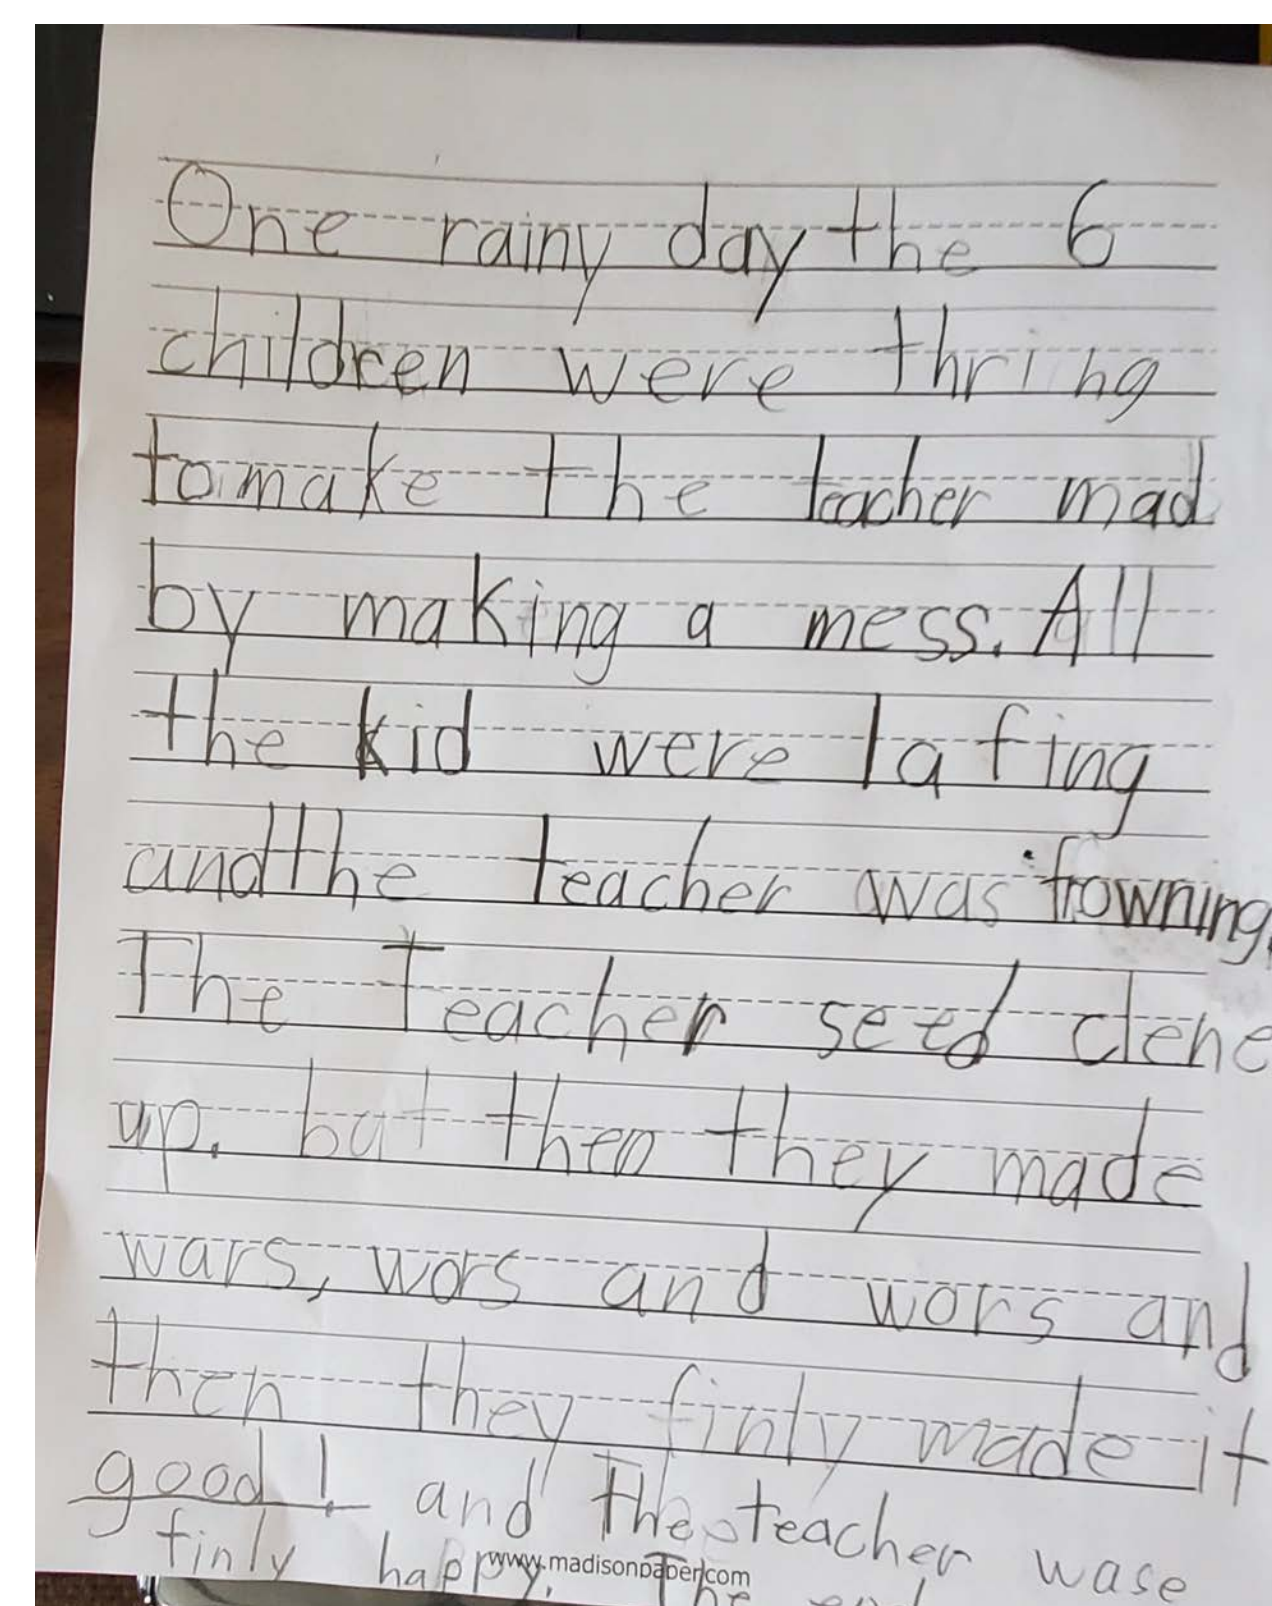 One rainy day the 6
children were thring
to make the teacher mad
by making a mess. All
the kid were lafing
and the teacher was frowning.
The Teacher seed clene
up. but then they made
wars, wors and wors and
then they finly made it
good! and The teacher wase
finly happy. The end
www.madisonpaper.com